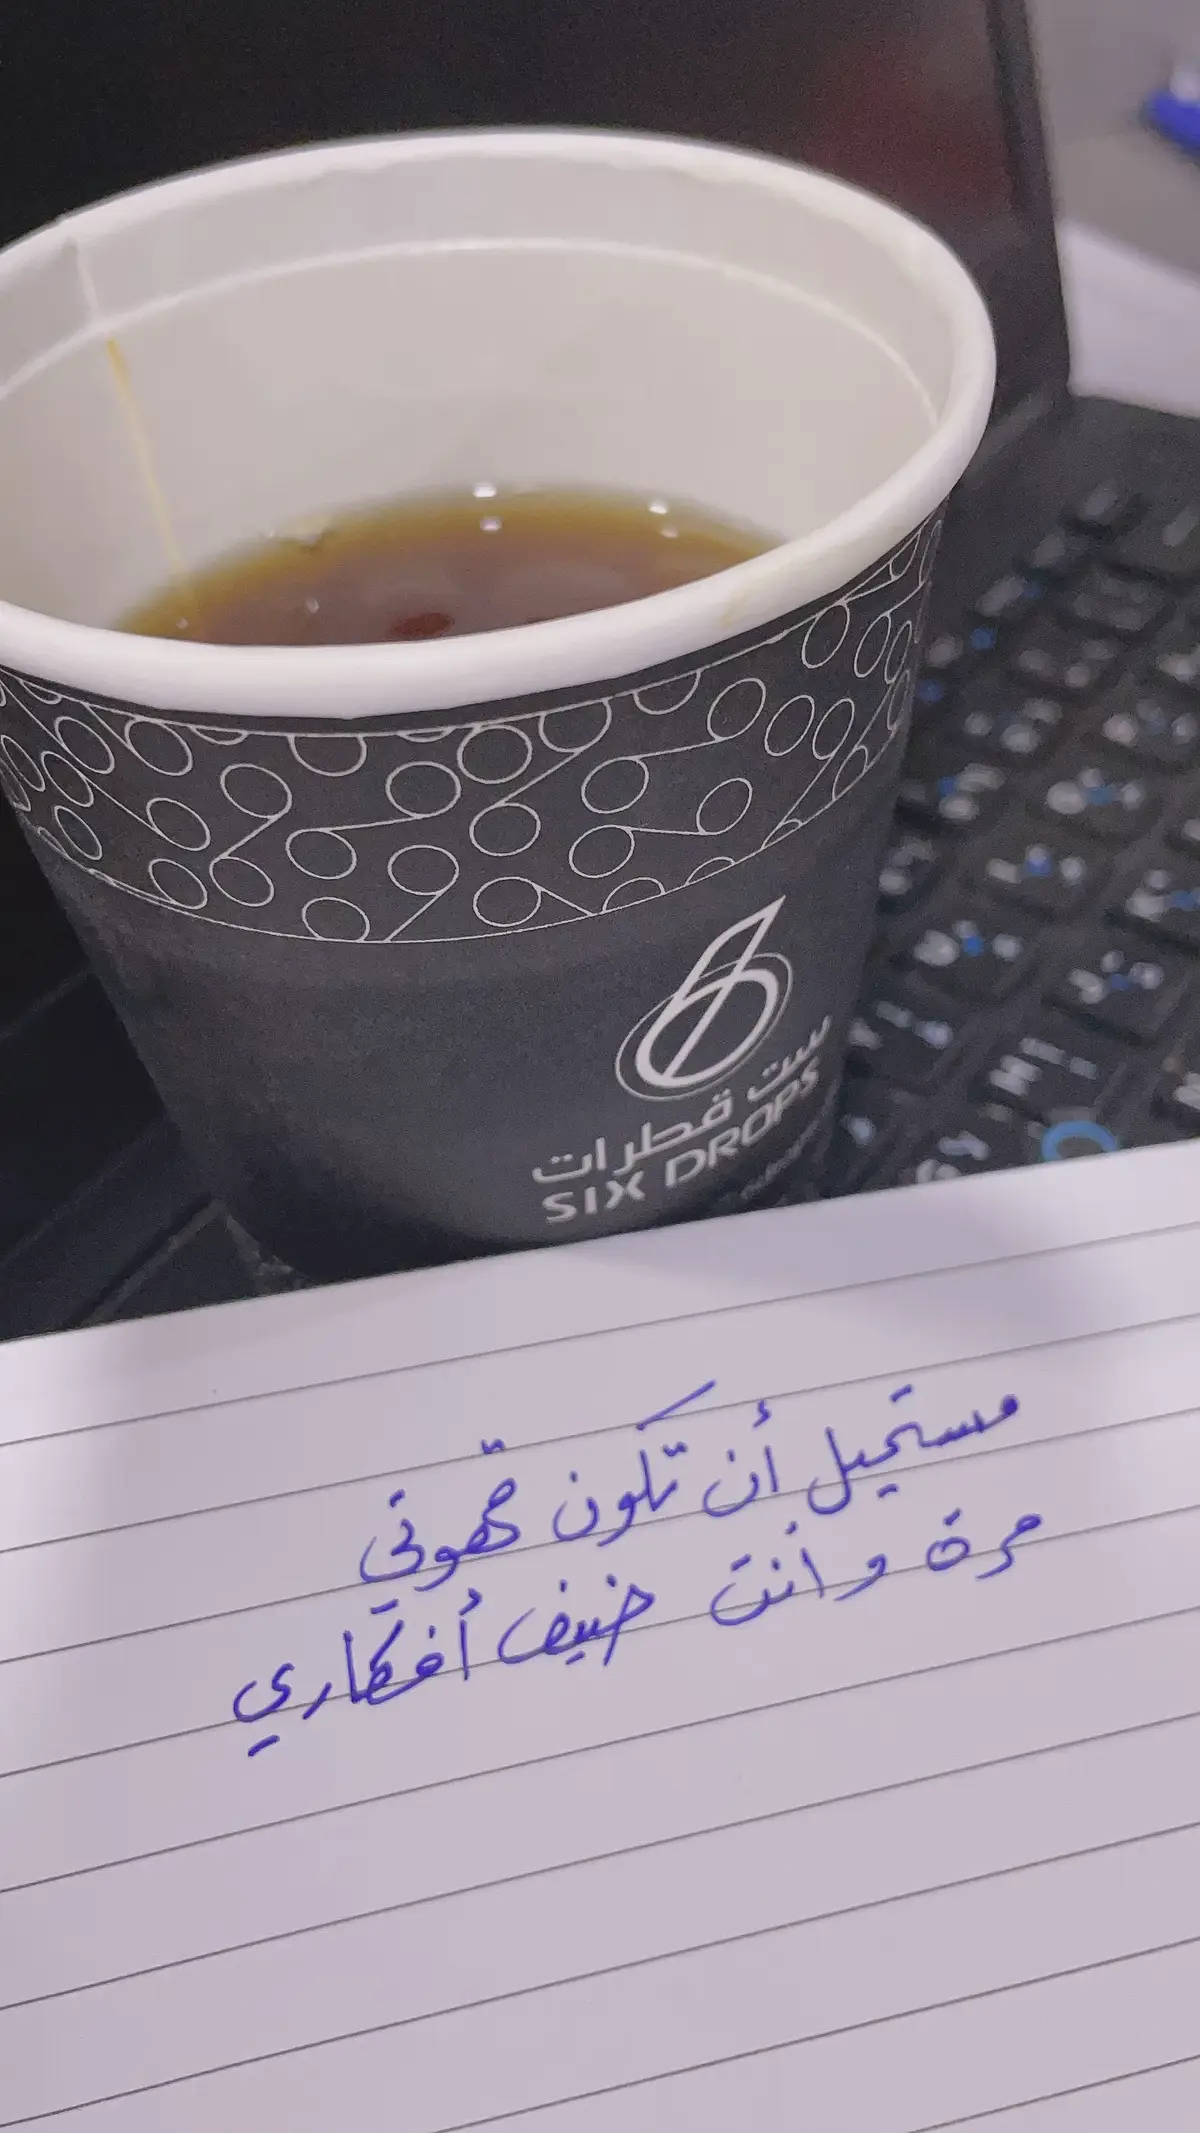 ست قطرات
SIX DROPS
مستحيل أن تكون قهوتي
مرة وأنت ضيف أفكاري